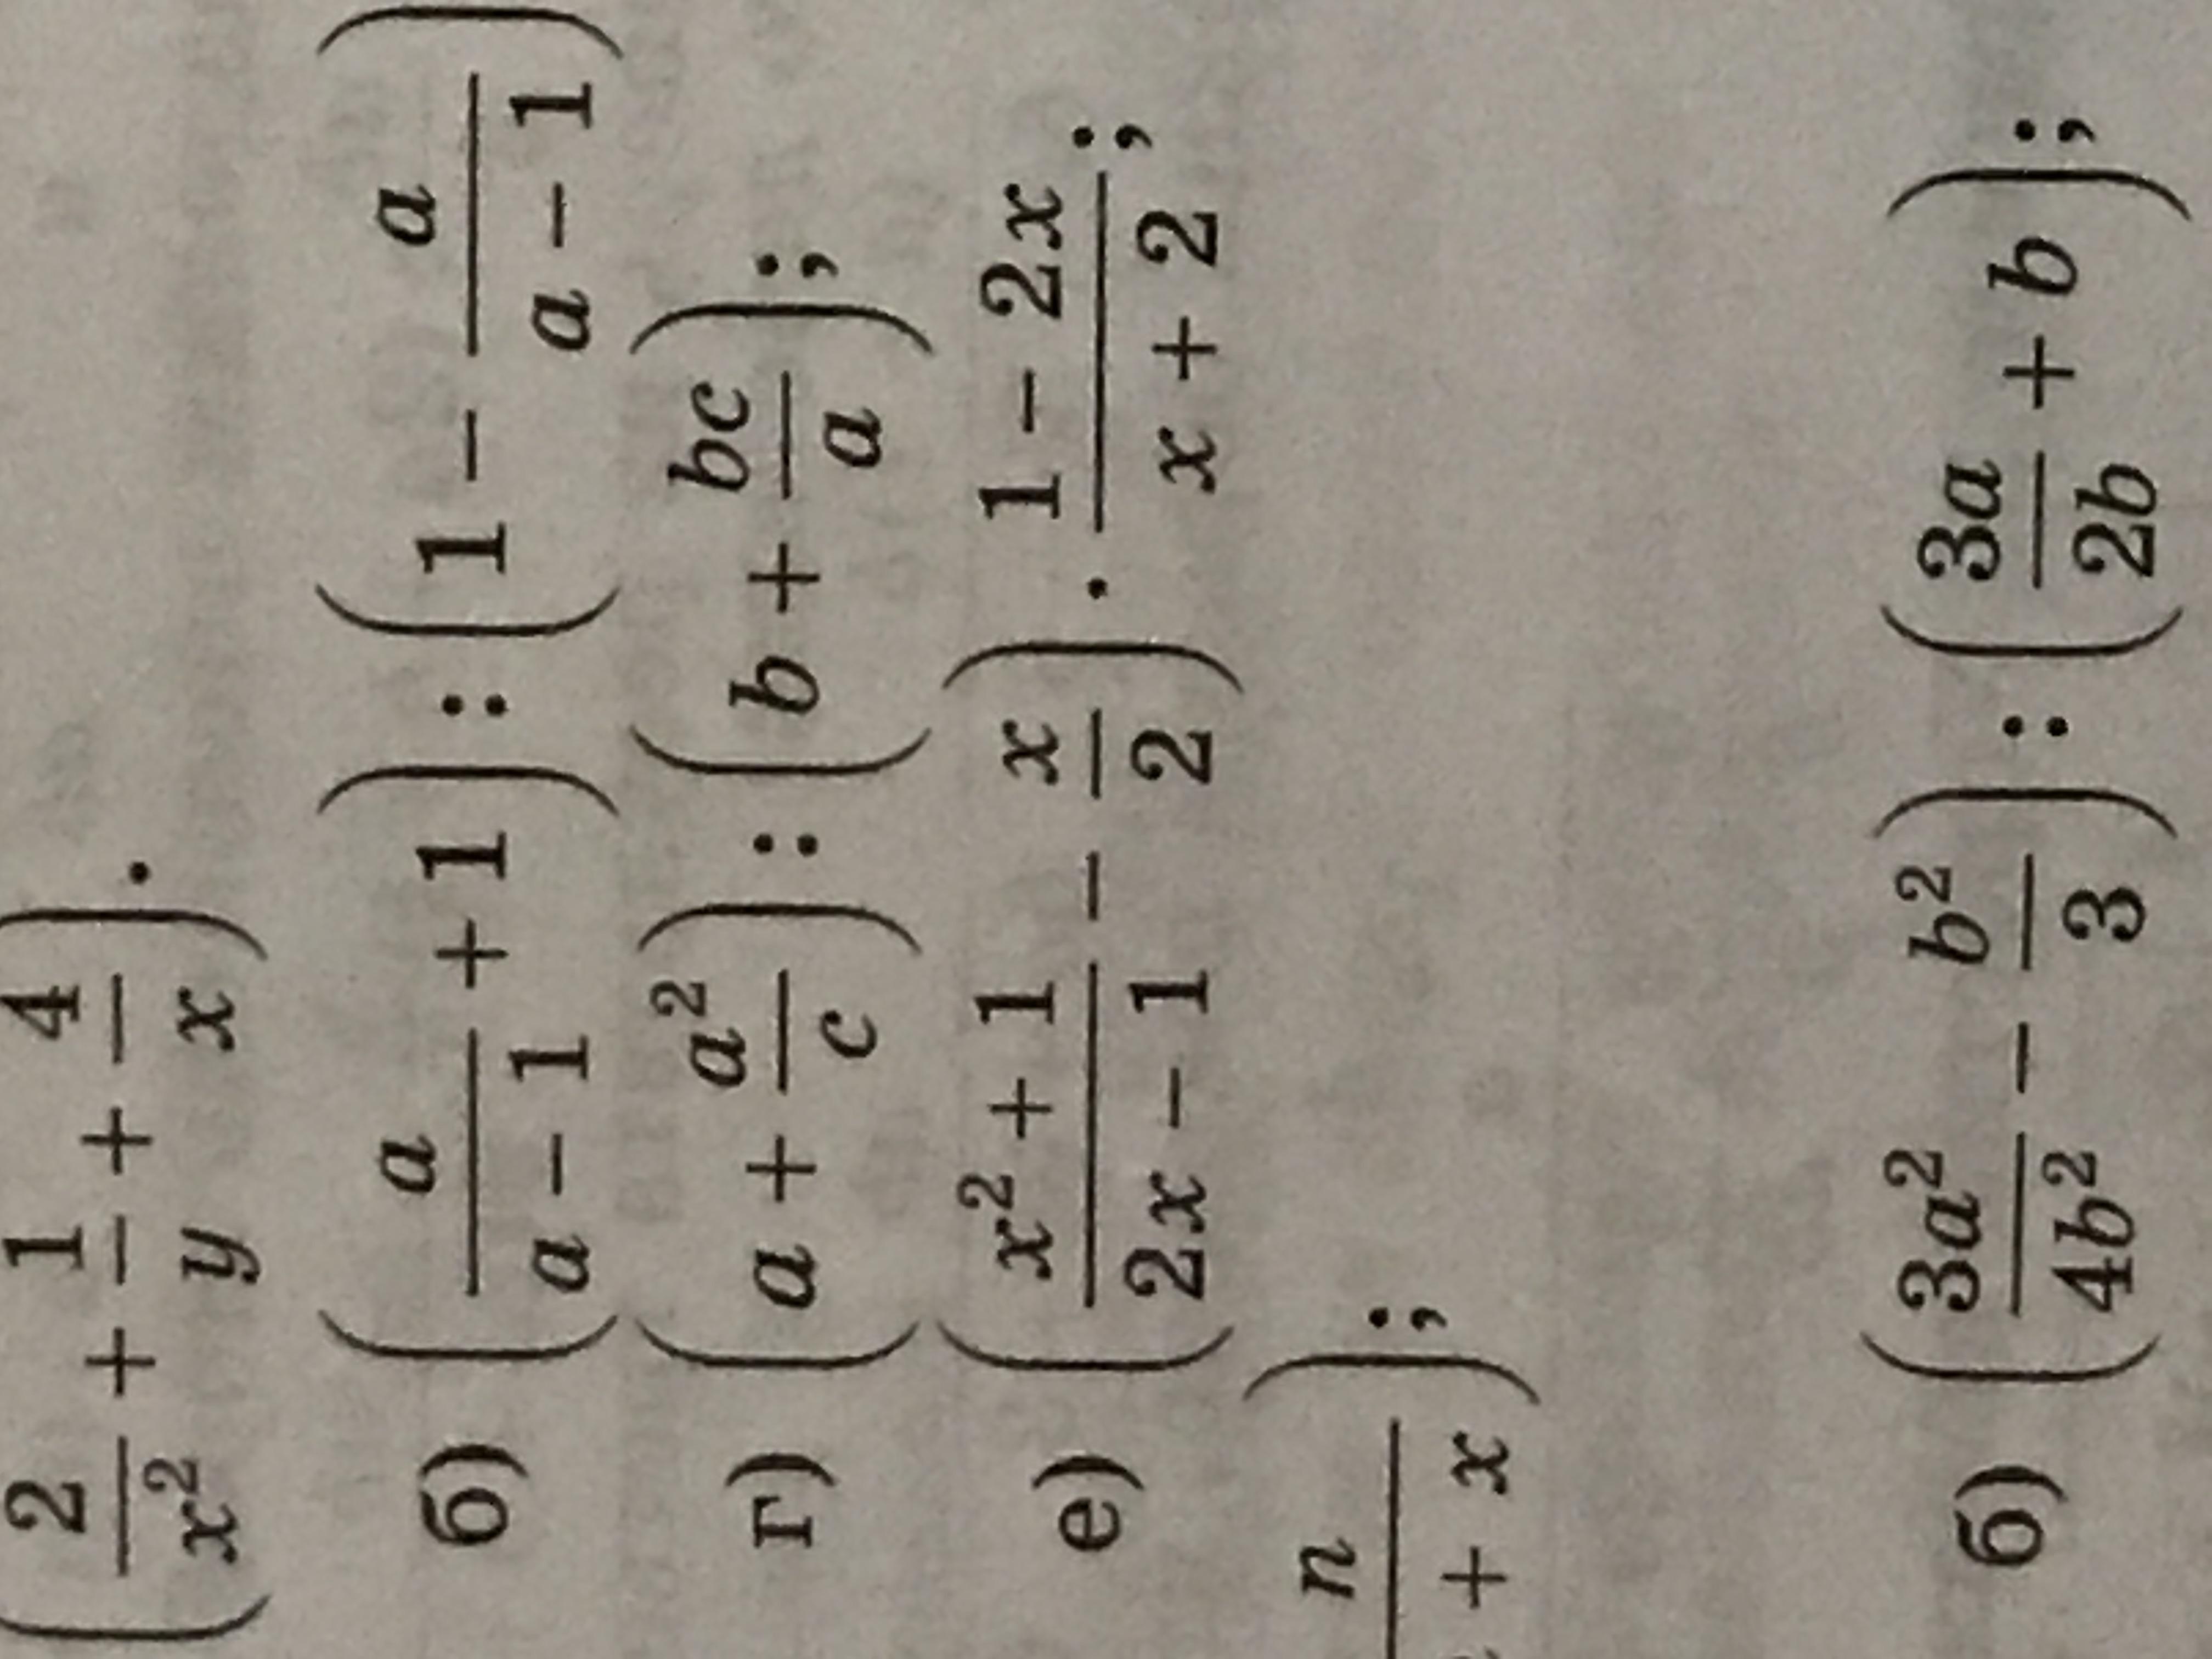 (2/x² + 1/y + 4/x).
б) (a/(a − 1) + 1) : (1 − a/(a − 1))
г) (a + a²/c) : (b + bc/a);
е) ((x² + 1)/(2x − 1) − x/2) · (1 − 2x)/(x + 2);
n/( + x));
б) (3a²/4b² − b²/3) : (3a/2b + b);